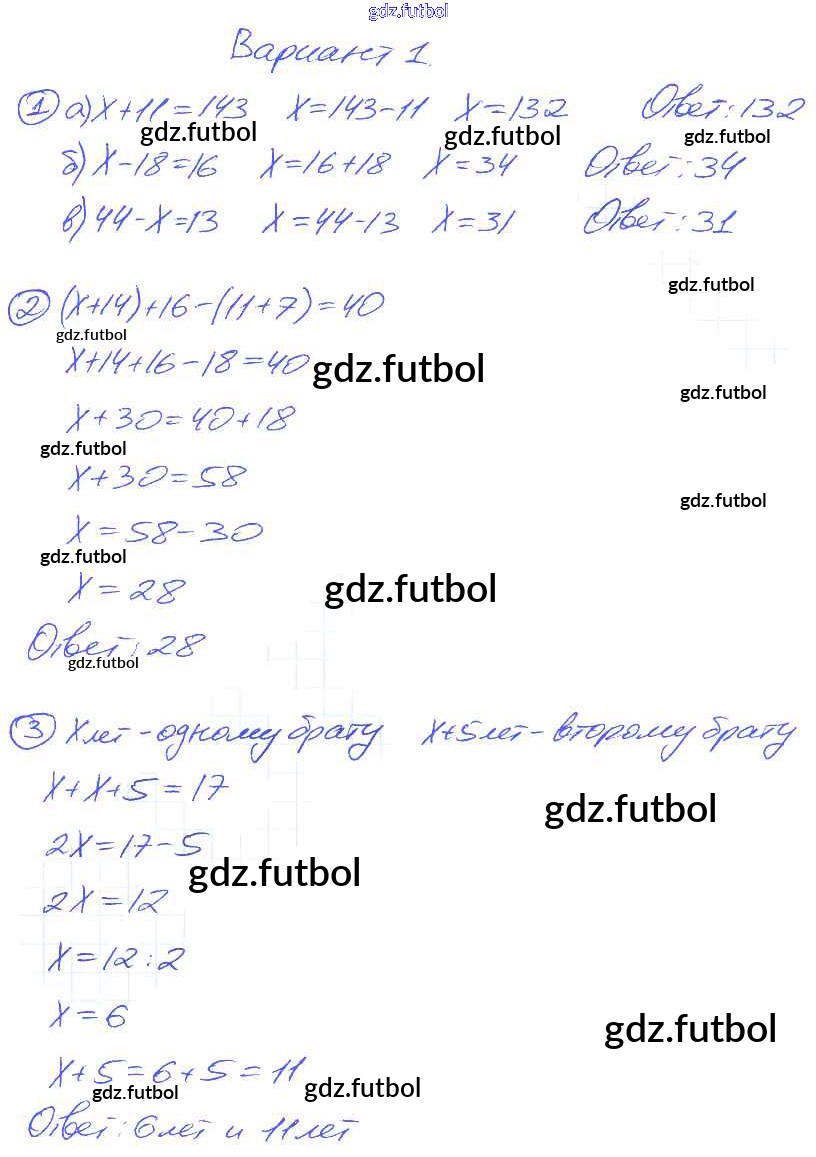 gdz.futbol
Вариант 1.
1 а) x+11=143 x=143-11 x=132 Ответ: 132
gdz.futbol gdz.futbol gdz.futbol
б) x-18=16 x=16+18 x=34 Ответ: 34
в) 44-x=13 x=44-13 x=31 Ответ: 31
gdz.futbol
2 (x+14)+16-(11+7)=40
gdz.futbol
x+14+16-18=40
gdz.futbol
gdz.futbol
x+30=40+18
gdz.futbol
x+30=58
gdz.futbol
x=58-30
gdz.futbol
x=28
gdz.futbol
Ответ: 28
gdz.futbol
3 x лет - одному брату x+5 лет - второму брату
x+x+5=17
gdz.futbol
2x=17-5
gdz.futbol
2x=12
x=12:2
x=6
gdz.futbol
x+5=6+5=11
gdz.futbol gdz.futbol
Ответ: 6 лет и 11 лет